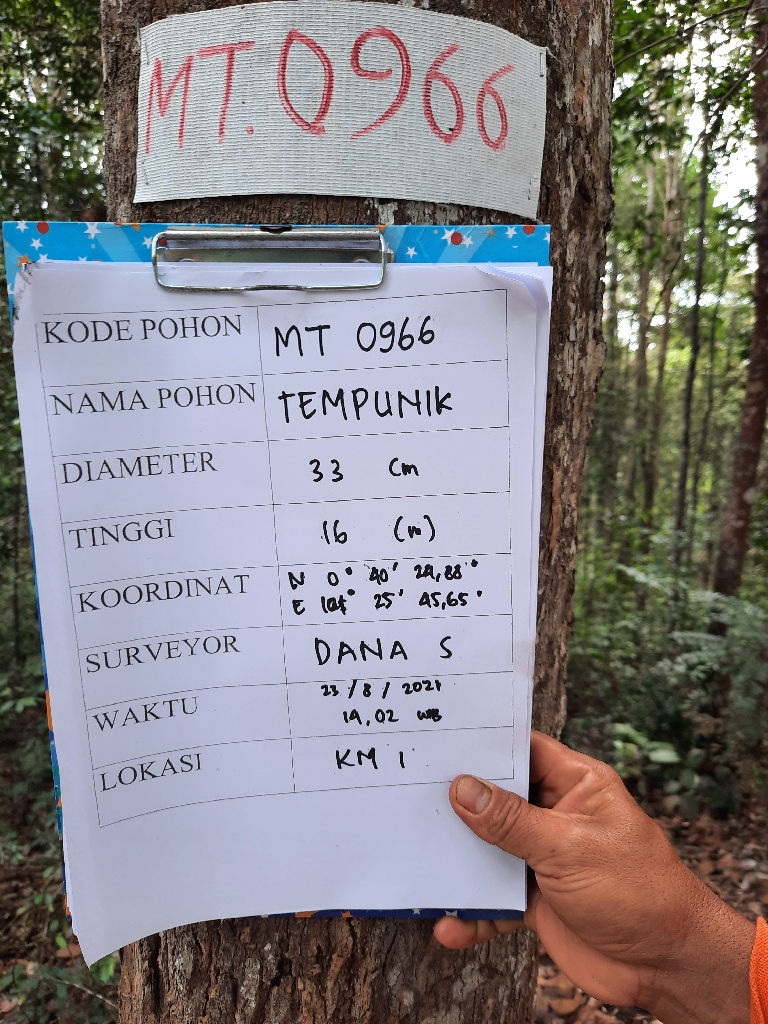 MT.0966
KODE POHON MT 0966
NAMA POHON TEMPUNIK
DIAMETER 33 cm
TINGGI 16 (m)
KOORDINAT N 0° 40' 24,88"
E 25' 45,65"
SURVEYOR DANA S
WAKTU 23/8/2021
14,02 WIB
LOKASI KM 1